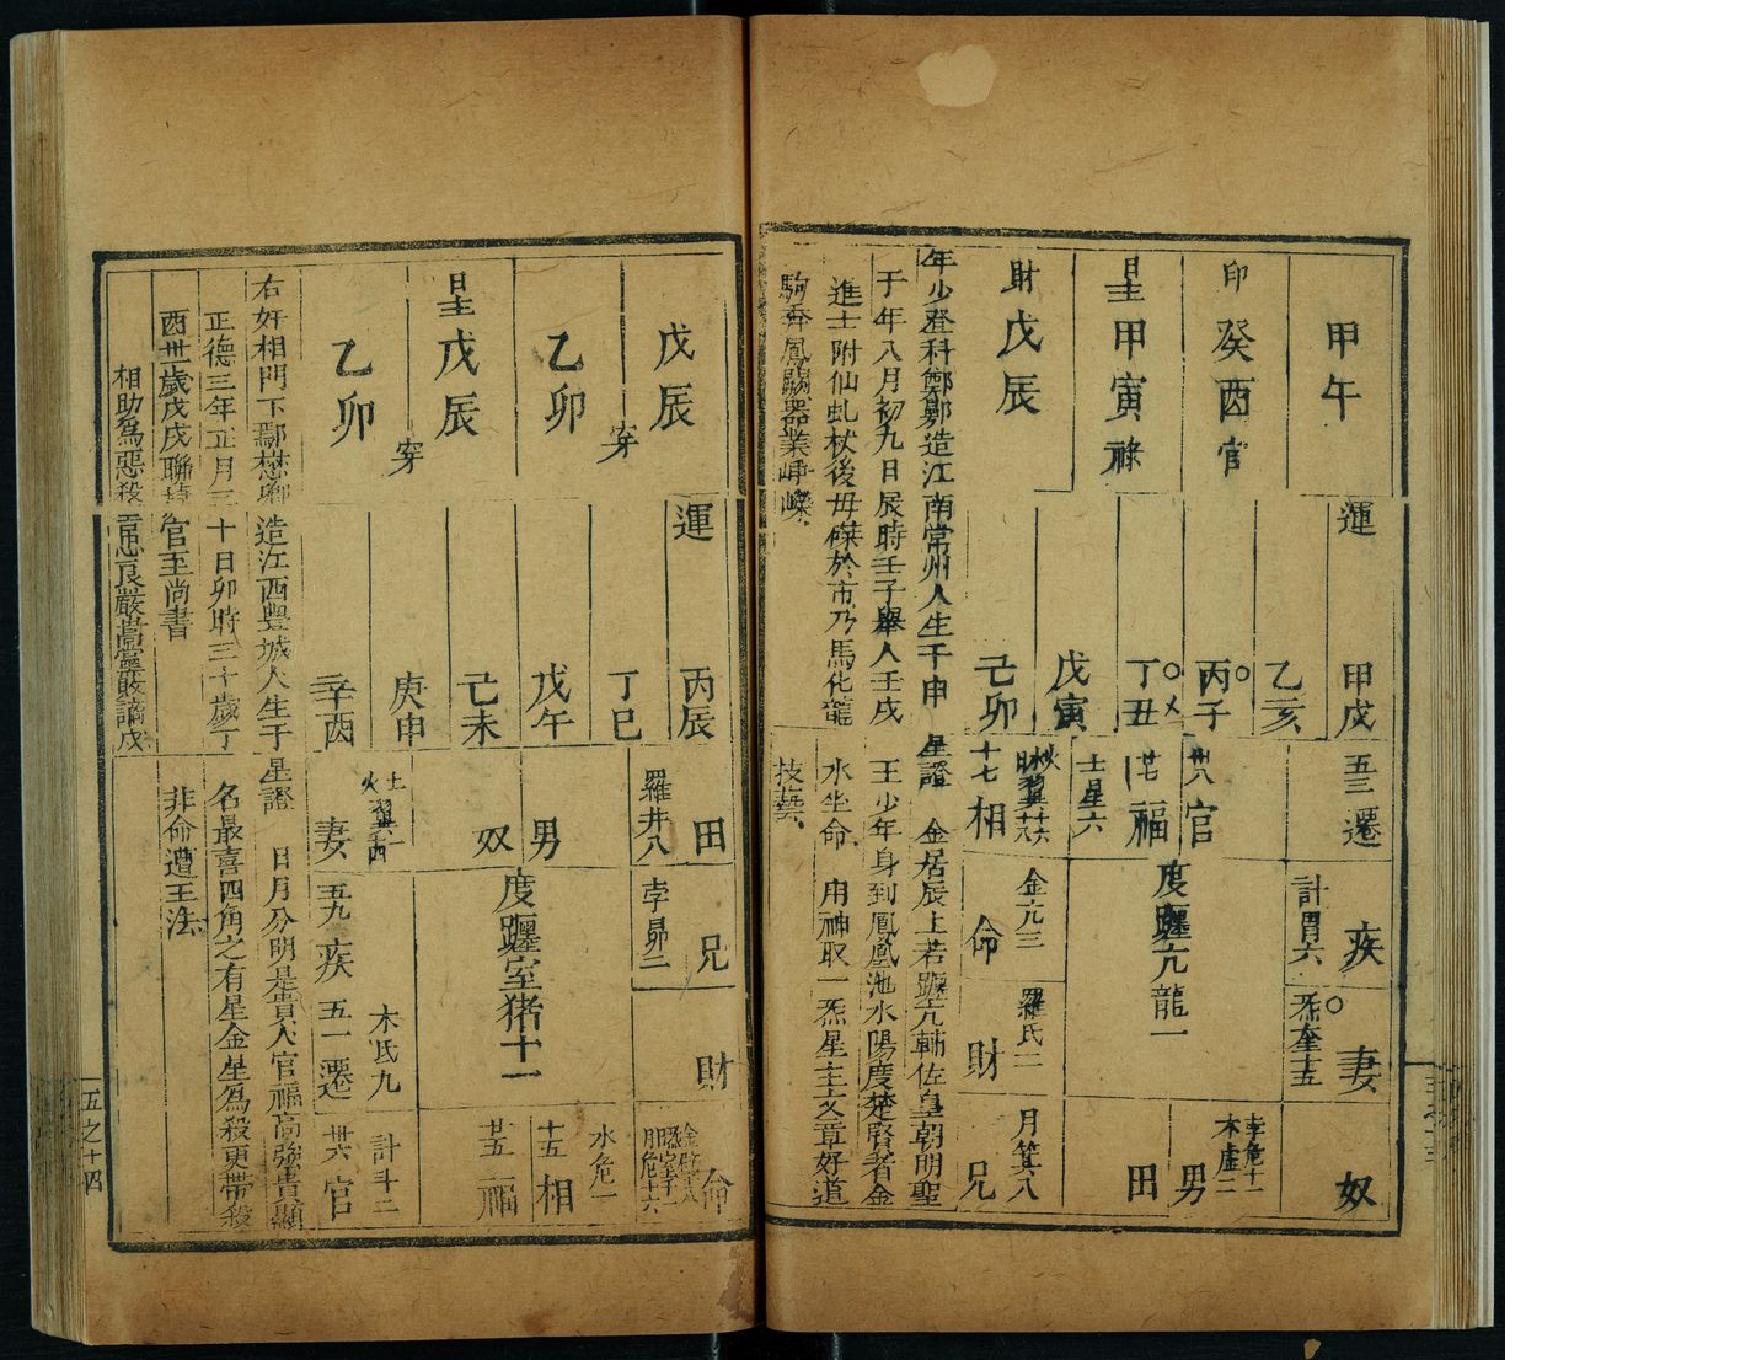 甲午
印癸酉官
日主甲寅祿
財戊辰
運
甲戌
乙亥
丙子
丁丑
戊寅
己卯
年少登科鄭鄤造江南常州人生于申
于年八月初九日辰時壬子舉人壬戌
進士附仙乩杖後毋磔於市乃馬化龍
駒奔鳳闕器業崢嶸
五三遷
卅八官
廿七福
土星六
十七相
計胃六
疾
炁奎十五
妻
度躔亢龍一
金亢三
命
羅氐二
財
奴
孛危十一
木虛二
男
田
月箕八
兄
星證 金居辰上若躔亢輔佐皇朝明聖
王少年身到鳳凰池水陽度楚賢者金
水坐命 用神取一炁星主文章好道
技藝
戊辰
穿
乙卯
日主戊辰
穿
乙卯
運
丙辰
丁巳
戊午
己未
庚申
辛酉
右奸相門下鄢懋卿造江西豐城人生于
正德三年正月三十日卯時三十歲丁
酉卅一歲戊戌聯捷官至尚書
相助為惡殺害忠良嚴嵩黨敗謫戍
羅井八
田
男
奴
妻
孛昴二
兄
度躔室猪十一
五九疾
財
五一遷
木氐九
命
水危一
十五相
廿五福
計斗二
卅六官
星證 日月分明是貴人官福高強貴顯
名最喜四角之有星金星為殺更帶殺
非命遭王法
五之十四